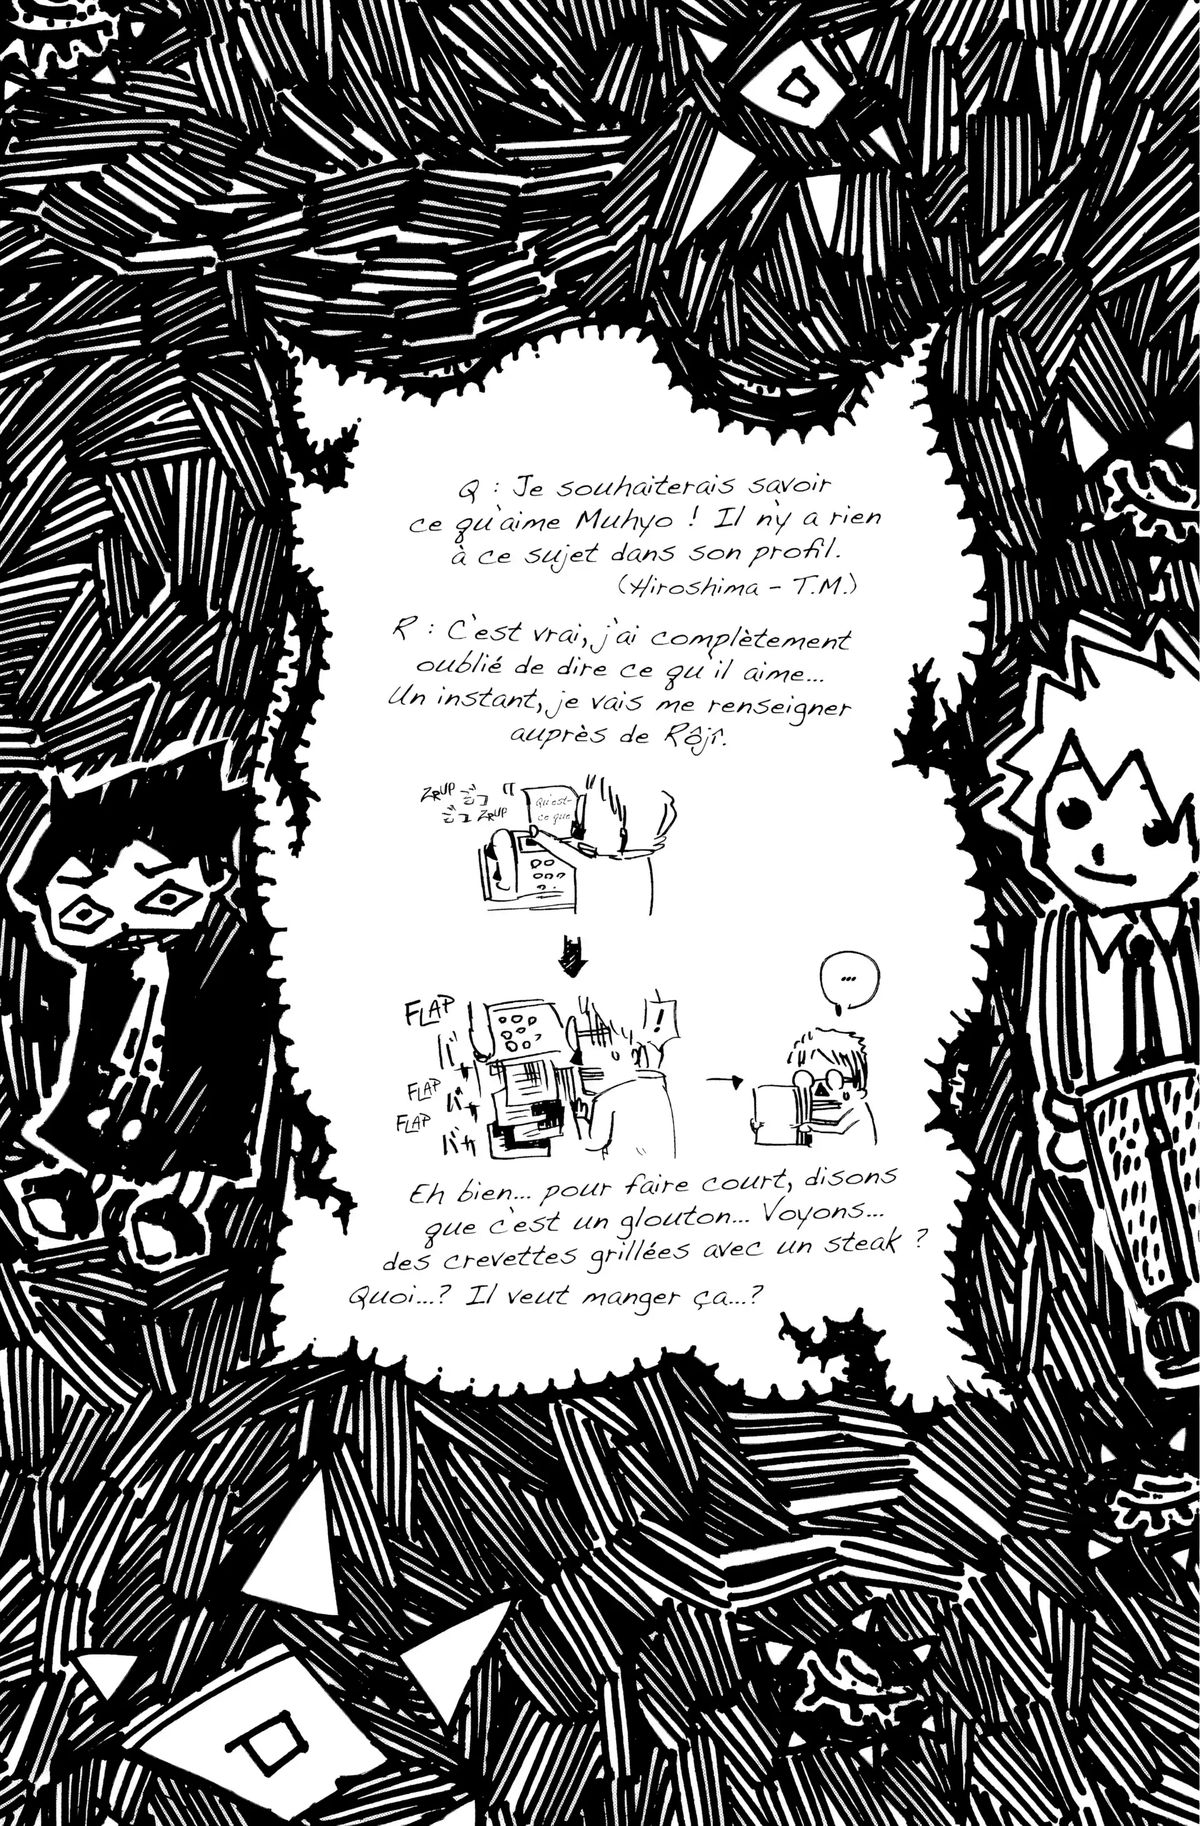 Q : Je souhaiterais savoir
ce qu'aime Muhyo ! Il n'y a rien
à ce sujet dans son profil.
(Hiroshima - T.M.)
R : C'est vrai, j'ai complètement
oublié de dire ce qu'il aime...
Un instant, je vais me renseigner
auprès de Rôjî.
ZRUP
ZRUP
Qu'est-
ce que
...
FLAP
!
FLAP
FLAP
Eh bien... pour faire court, disons
que c'est un glouton... Voyons...
des crevettes grillées avec un steak ?
Quoi...? Il veut manger ça...?